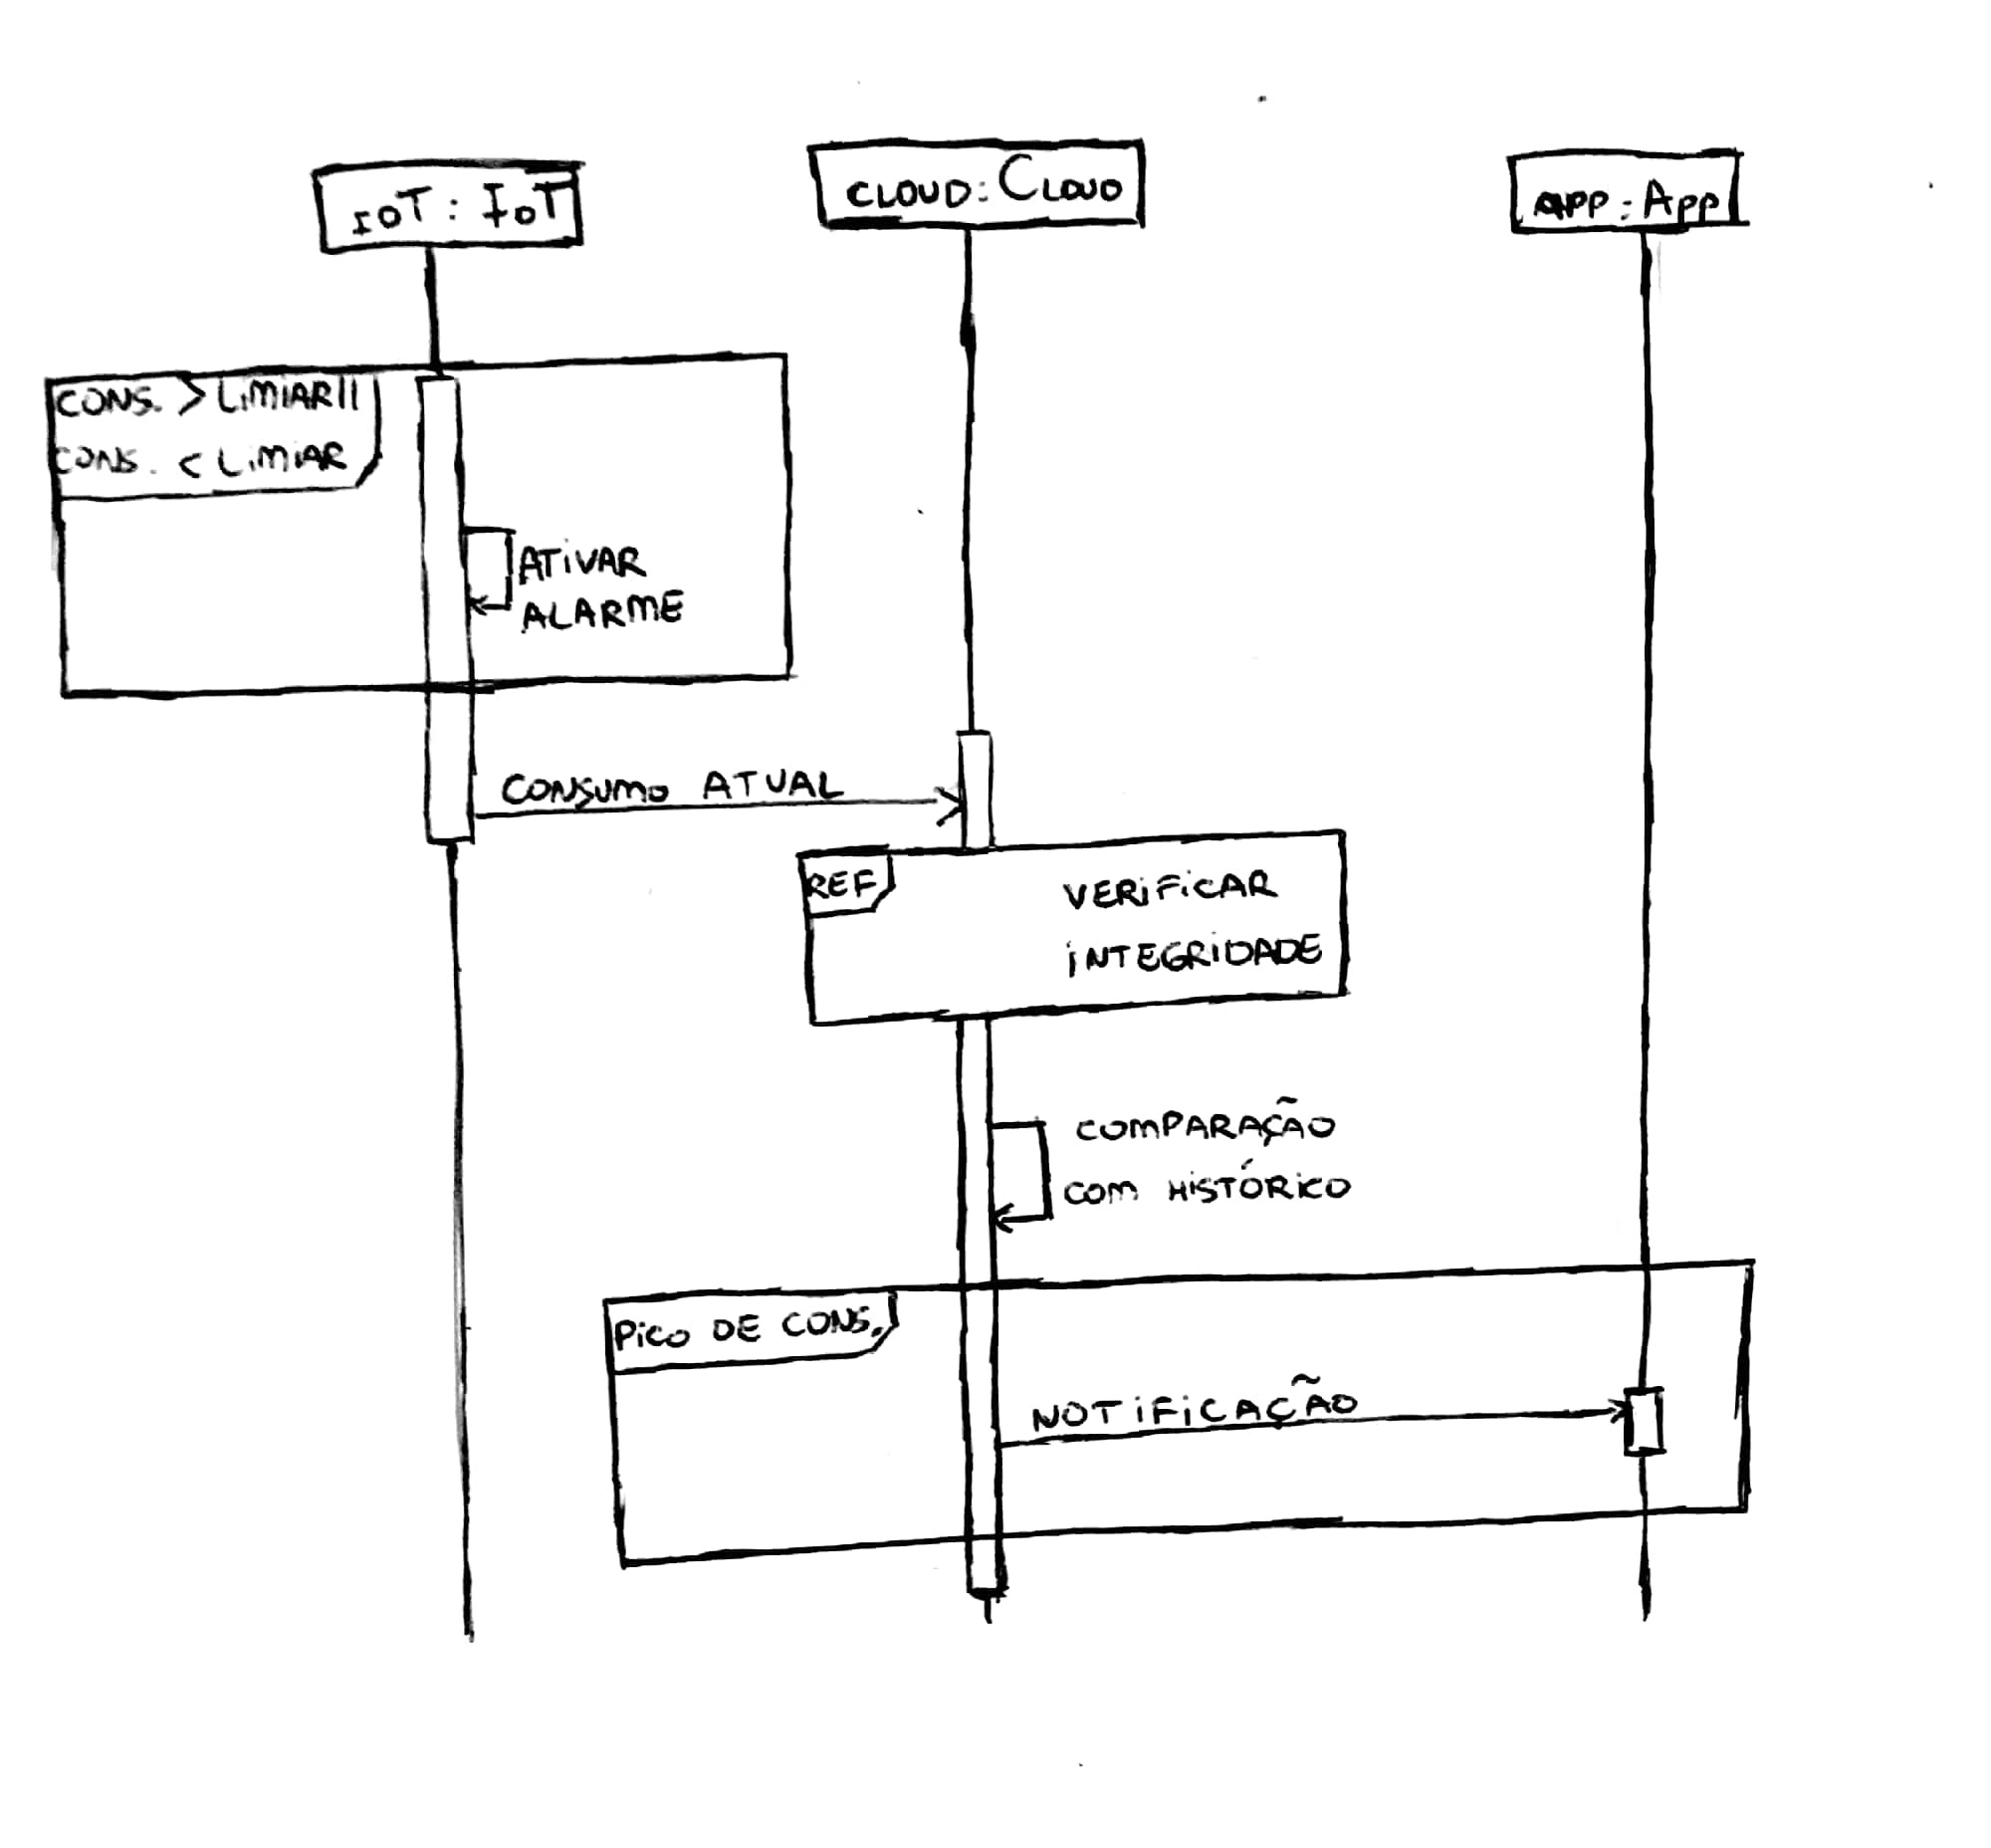 IOT : IOT
CLOUD: CLOUD
APP : APP
CONS. > LIMIAR||
CONS. < LIMIAR
ATIVAR
ALARME
CONSUMO ATUAL
REF
VERIFICAR
INTEGRIDADE
COMPARAÇÃO
COM HISTÓRICO
PICO DE CONS.
NOTIFICAÇÃO